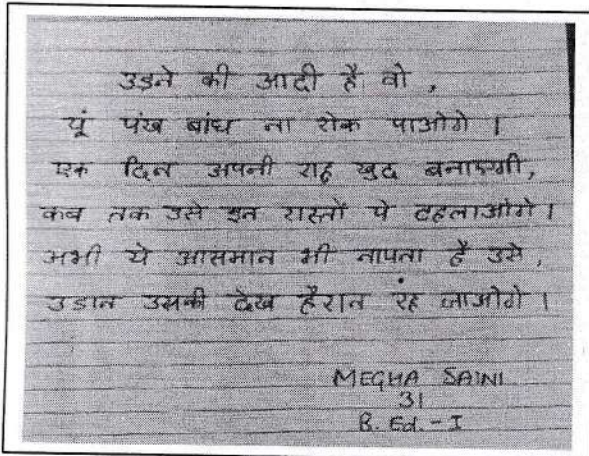 उड़ने की आदी है वो ,
यूं पंख बांध ना रोक पाओगे ।
एक दिन अपनी राह खुद बनाएगी,
कब तक उसे इन रास्तों पे टहलाओगे ।
अभी ये आसमान भी नापना है उसे ,
उडान उसकी देख हैरान रह जाओगे ।
MEGHA SAINI
31
B. Ed. - I